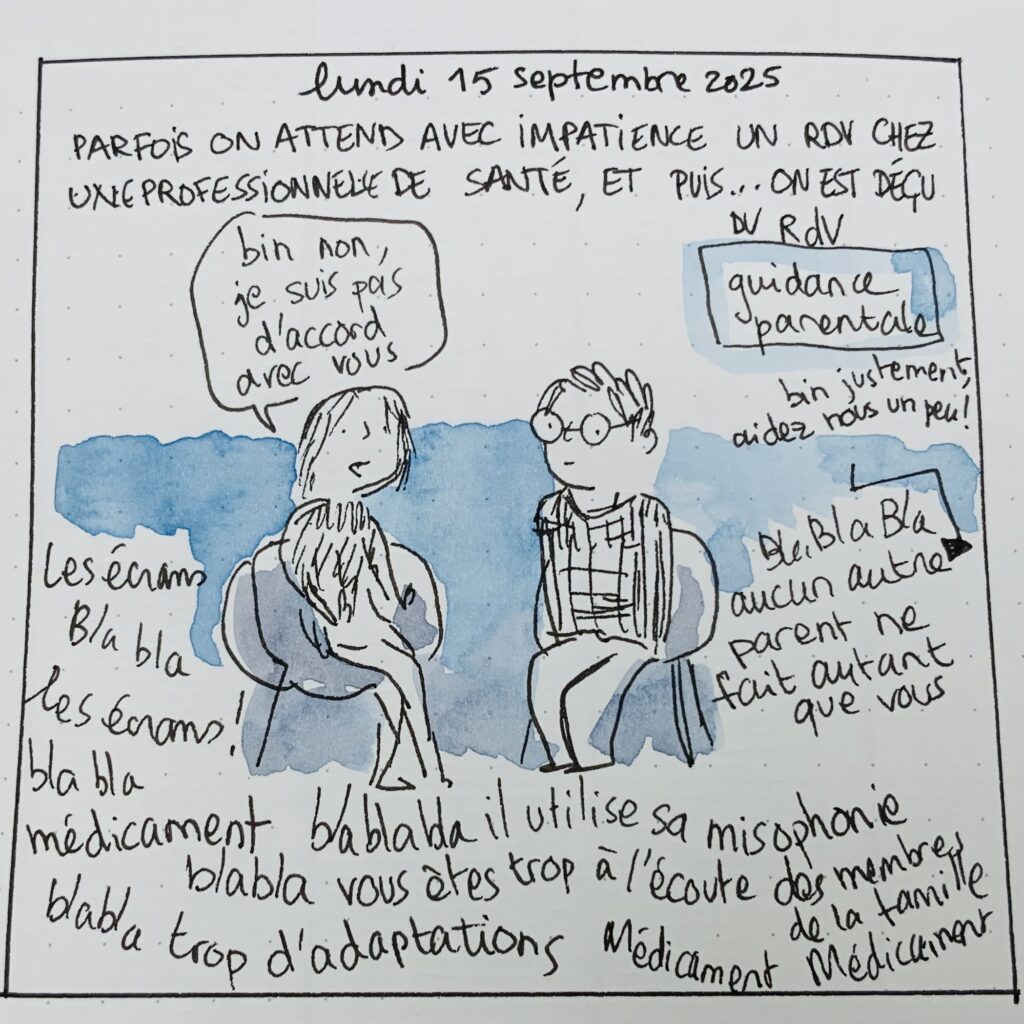 lundi 15 septembre 2025
PARFOIS ON ATTEND AVEC IMPATIENCE UN RDV CHEZ
UNE PROFESSIONNELLE DE SANTÉ, ET PUIS... ON EST DÉÇU
DU RDV
bin non,
je suis pas
d'accord
avec vous
guidance
parentale
bin justement,
aidez nous un peu!
Les écrans
Bla bla
les écrans!
bla bla
médicament
Bla Bla Bla
aucun autre
parent ne
fait autant
que vous
blablabla il utilise sa misophonie
blabla vous êtes trop à l'écoute des membres
de la famille
blabla trop d'adaptations
Médicament Médicament